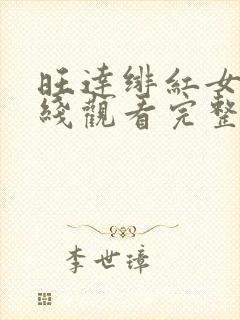 旺达绯紅女
綫觀看完整
李世璋